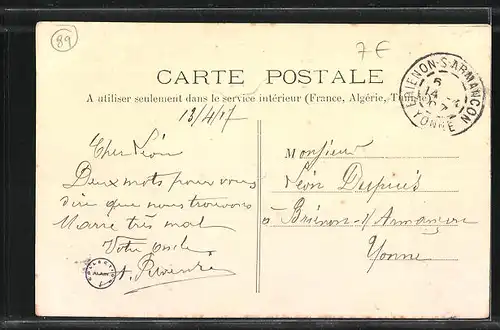 89
7€
CARTE POSTALE
A utiliser seulement dans le service intérieur (France, Algérie, Tunisie)
BRIENON-S-ARMANÇON
YONNE
Cher Léon
Deux mots pour vous
dire que nous trouvons
très mal
Votre oncle
A.
Monsieur
Léon
à Brienon s/ Armançon
Yonne